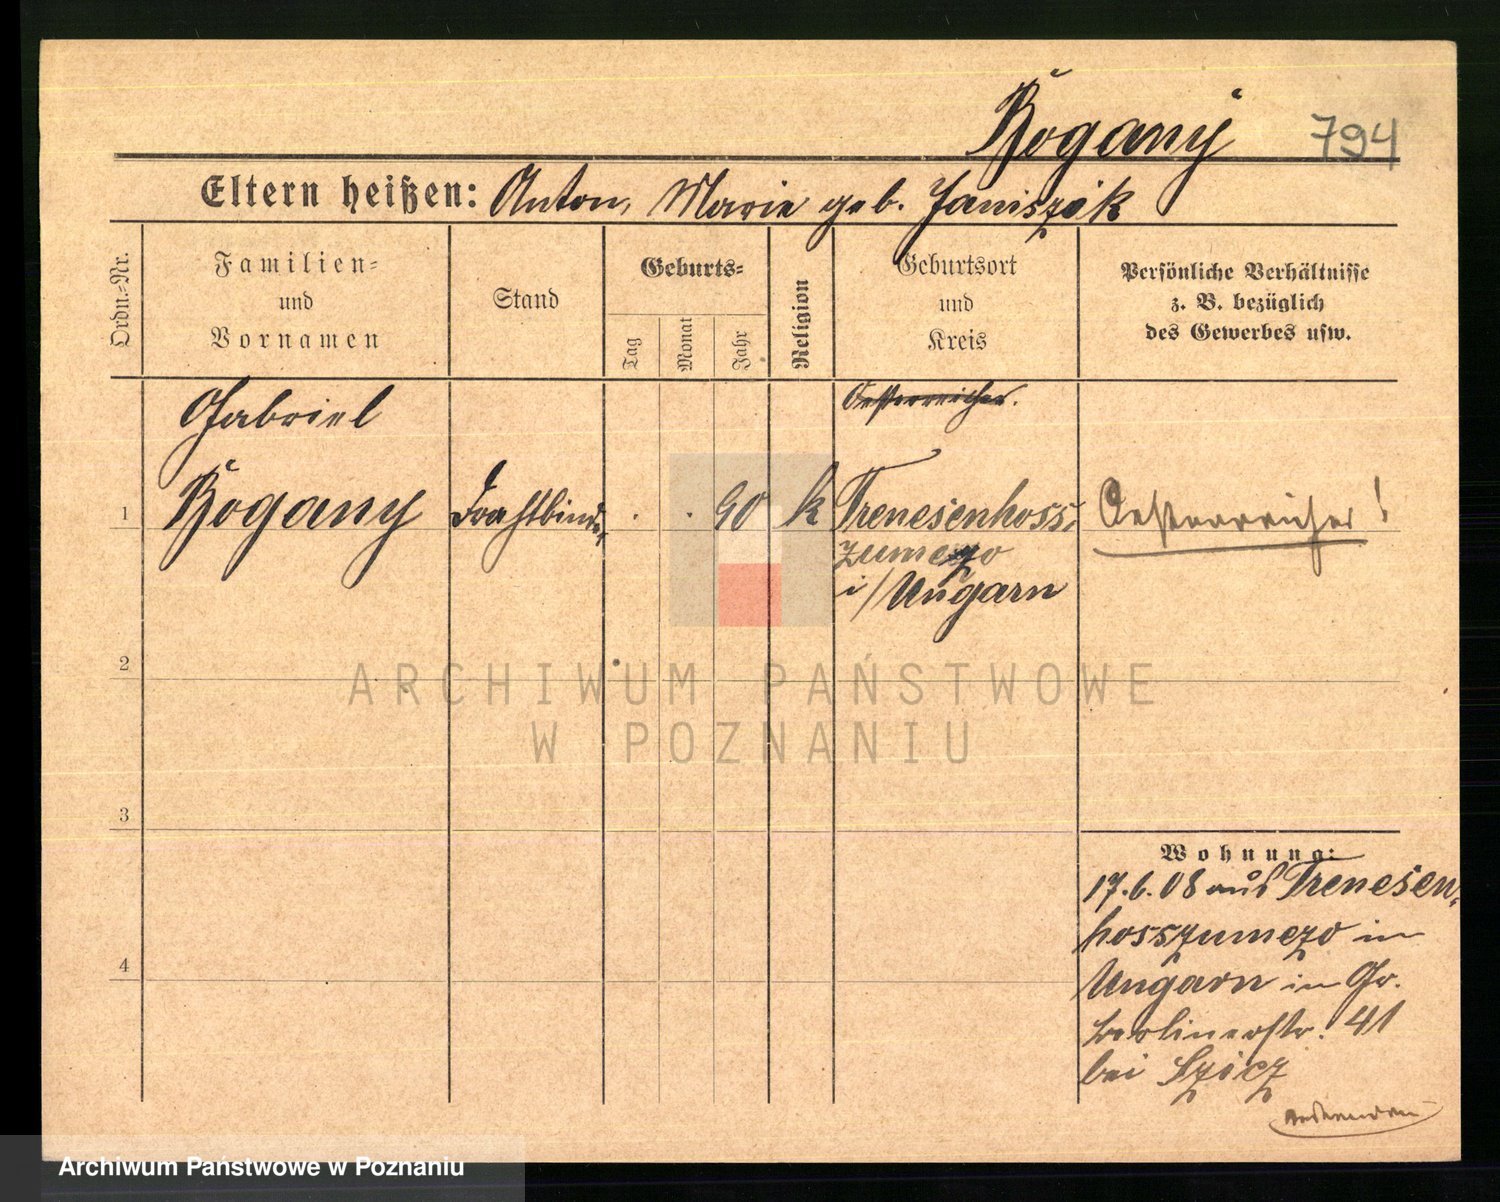 Bogany 794
Eltern heißen: Anton, Marie geb. Janiszik
Ordn.-Nr.
Familien-
und
Vornamen
Stand
Geburts-
Tag
Monat
Jahr
Religion
Geburtsort
und
Kreis
Persönliche Verhältnisse
z. B. bezüglich
des Gewerbes usw.
Gabriel
Oesterreicher.
1
Bogany
Drahtbinder
. . 90 k
Trenesenhoss-
zumezo
i/Ungarn
Oesterreicher!
2
3
4
Wohnung:
17.6.08 aus Trenesen-
hosszumezo in
Ungarn in Gr.
Berlinerstr. 41
bei Szicz
ARCHIWUM PAŃSTWOWE
W POZNANIU
Archiwum Państwowe w Poznaniu